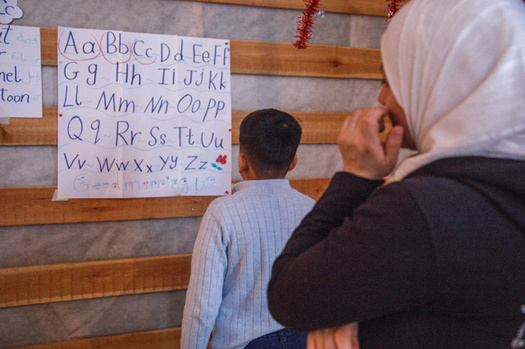 t
r
nel
toon
Aa Bb Cc Dd Ee Ff
Gg Hh Ii Jj Kk
Ll Mm Nn Oo Pp
Qq Rr Ss Tt Uu
Vv Ww Xx Yy Zz